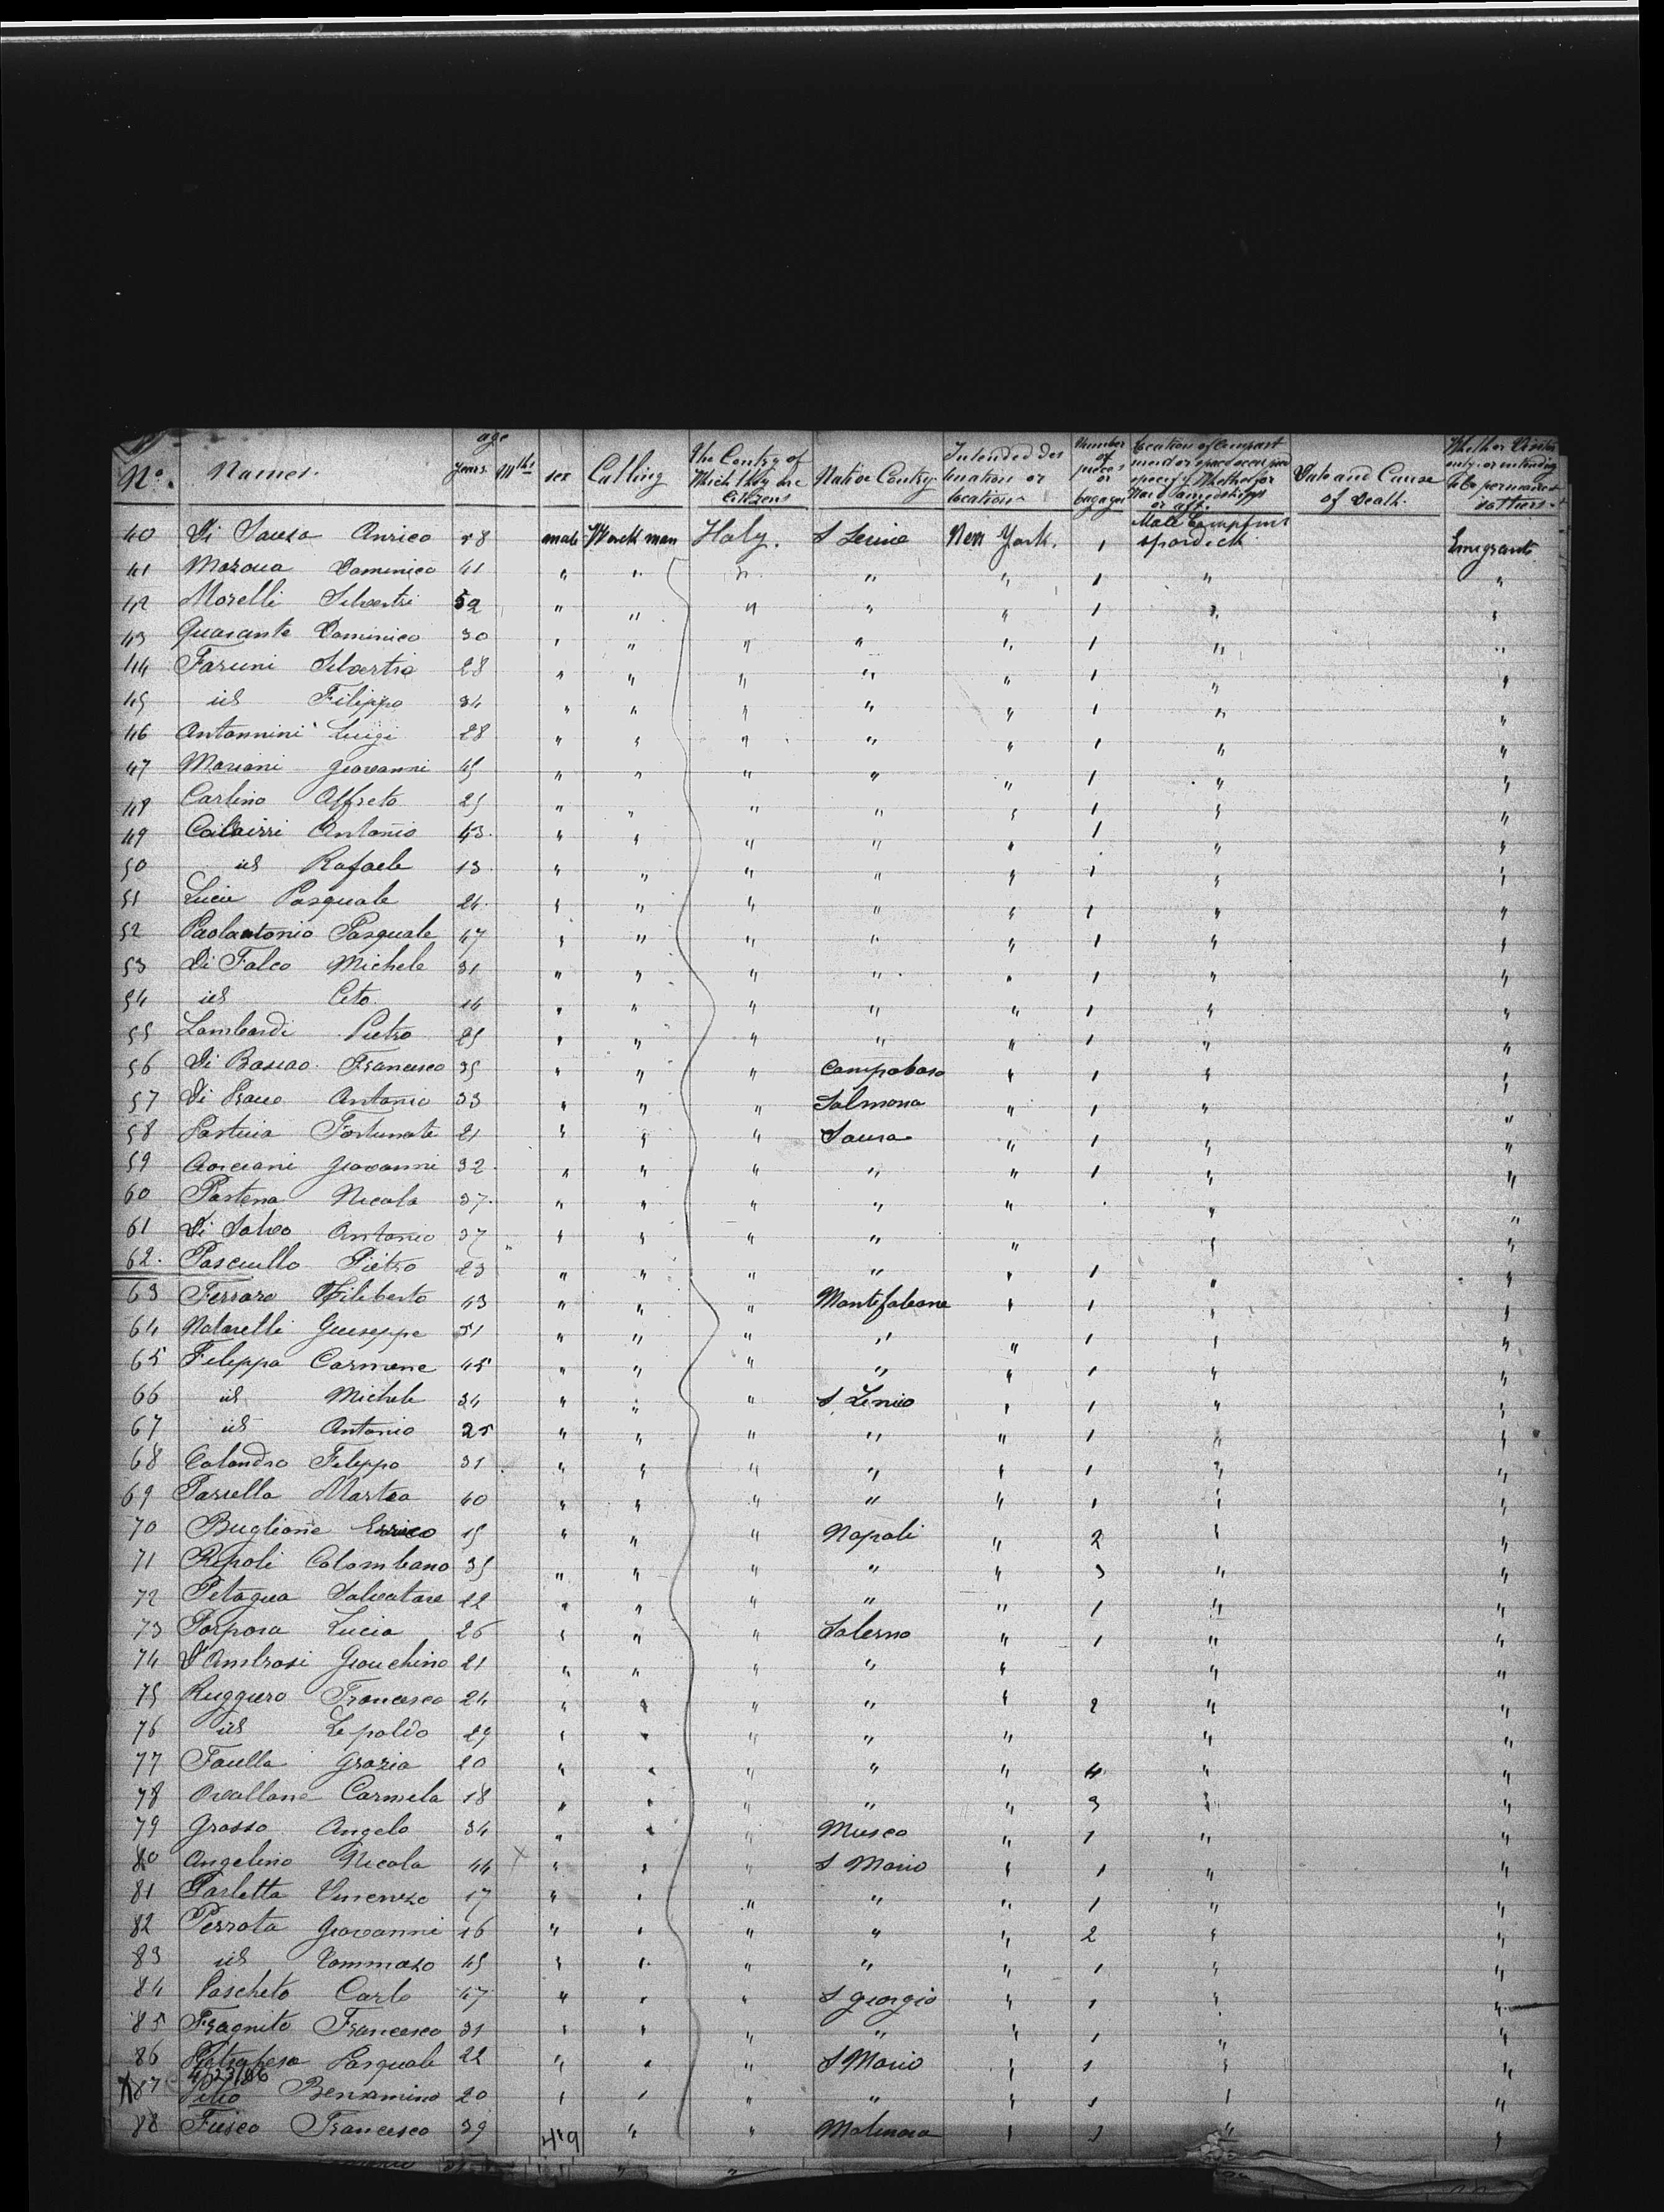 No. Names. age years Mths sex Calling The Contry of Which they are Citizens Native Contry Intended destination or location Number of pieces or bagages Location of Compartment or space occupied Date and Cause of Death.
40 Di Sausa Anrico 28 male Workman Italy. S Lenine New York. 1 spardeck Emigrants
41 Mazoua Dominico 41 " " " " " 1 " "
42 Morelli Silvestri 52 " " " " " 1 " "
43 Quarante Dominico 30 " " " " " 1 " "
44 Faruni Silvertio 28 " " " " " 1 " "
45 id Filippo 34 " " " " " 1 " "
46 Antonnini Luigi 28 " " " " " 1 " "
47 Mariani Giovanni 45 " " " " " 1 " "
48 Carlino Alfreto 25 " " " " " 1 " "
49 Antonio 43 " " " " " 1 " "
50 id Rafaele 13 " " " " " 1 " "
51 Lucia Pasquale 24 " " " " " 1 " "
52 Paolantonio Pasquale 47 " " " " " 1 " "
53 Di Falco Michele 31 " " " " " 1 " "
54 id Cito 14 " " " " " 1 " "
55 Lombardi Pietro 25 " " " " " 1 " "
56 Di Francesco 35 " " " Campobaso " 1 " "
57 Di Antonio 33 " " " Salmona " 1 " "
58 Fortunate 21 " " " Saura " 1 " "
59 Giovanni 32 " " " " " 1 " "
60 Pastena Nicola 37 " " " " " " "
61 Di Salvo Antonio 37 " " " " " " "
62. Pasciullo Pietro 23 " " " " " 1 " "
63 Ferraro Filiberto 43 " " " Montefalcone " 1 " "
64 Notarelli Giuseppe 51 " " " " " 1 " "
65 Filippa Carmene 45 " " " " " 1 " "
66 id Michele 34 " " " S Lenico " 1 " "
67 id Antonio 25 " " " " " 1 " "
68 Calandro Filippo 31 " " " " " 1 " "
69 Parrella Martea 40 " " " " " 1 " "
70 Buglione Enrico 15 " " " Napoli " 2 " "
71 Ripoli Colombano 35 " " " " " 3 " "
72 Petagua Salvatore 22 " " " " " 1 " "
73 Porpora Lucia 26 " " " Salerno " 1 " "
74 D'Ambrosi Giouchino 21 " " " " " " "
75 Ruggiero Francesco 24 " " " " " 2 " "
76 id Lepoldo 29 " " " " " " "
77 Faella Grazia 20 " " " " " 4 " "
78 Avallone Carmela 18 " " " " " 3 " "
79 Grosso Angelo 34 " " " Museo " 1 " "
80 Angelino Nicola 44 X " " " S Mario " 1 " "
81 Parletta Vincenzo 17 " " " " " 1 " "
82 Perrota Giovanni 16 " " " " " 2 " "
83 id Tommaso 45 " " " " " 1 " "
84 Pascheto Carlo 47 " " " S Giorgio " 1 " "
85 Fragnito Francesco 31 " " " " " 1 " "
86 Pasquale 22 " " " S Mario " 1 " "
4/23/06
X 87 Pilio Beniamino 20 " " " " " 1 " "
88 Fusco Francesco 39 " " Molinara " 1 " "